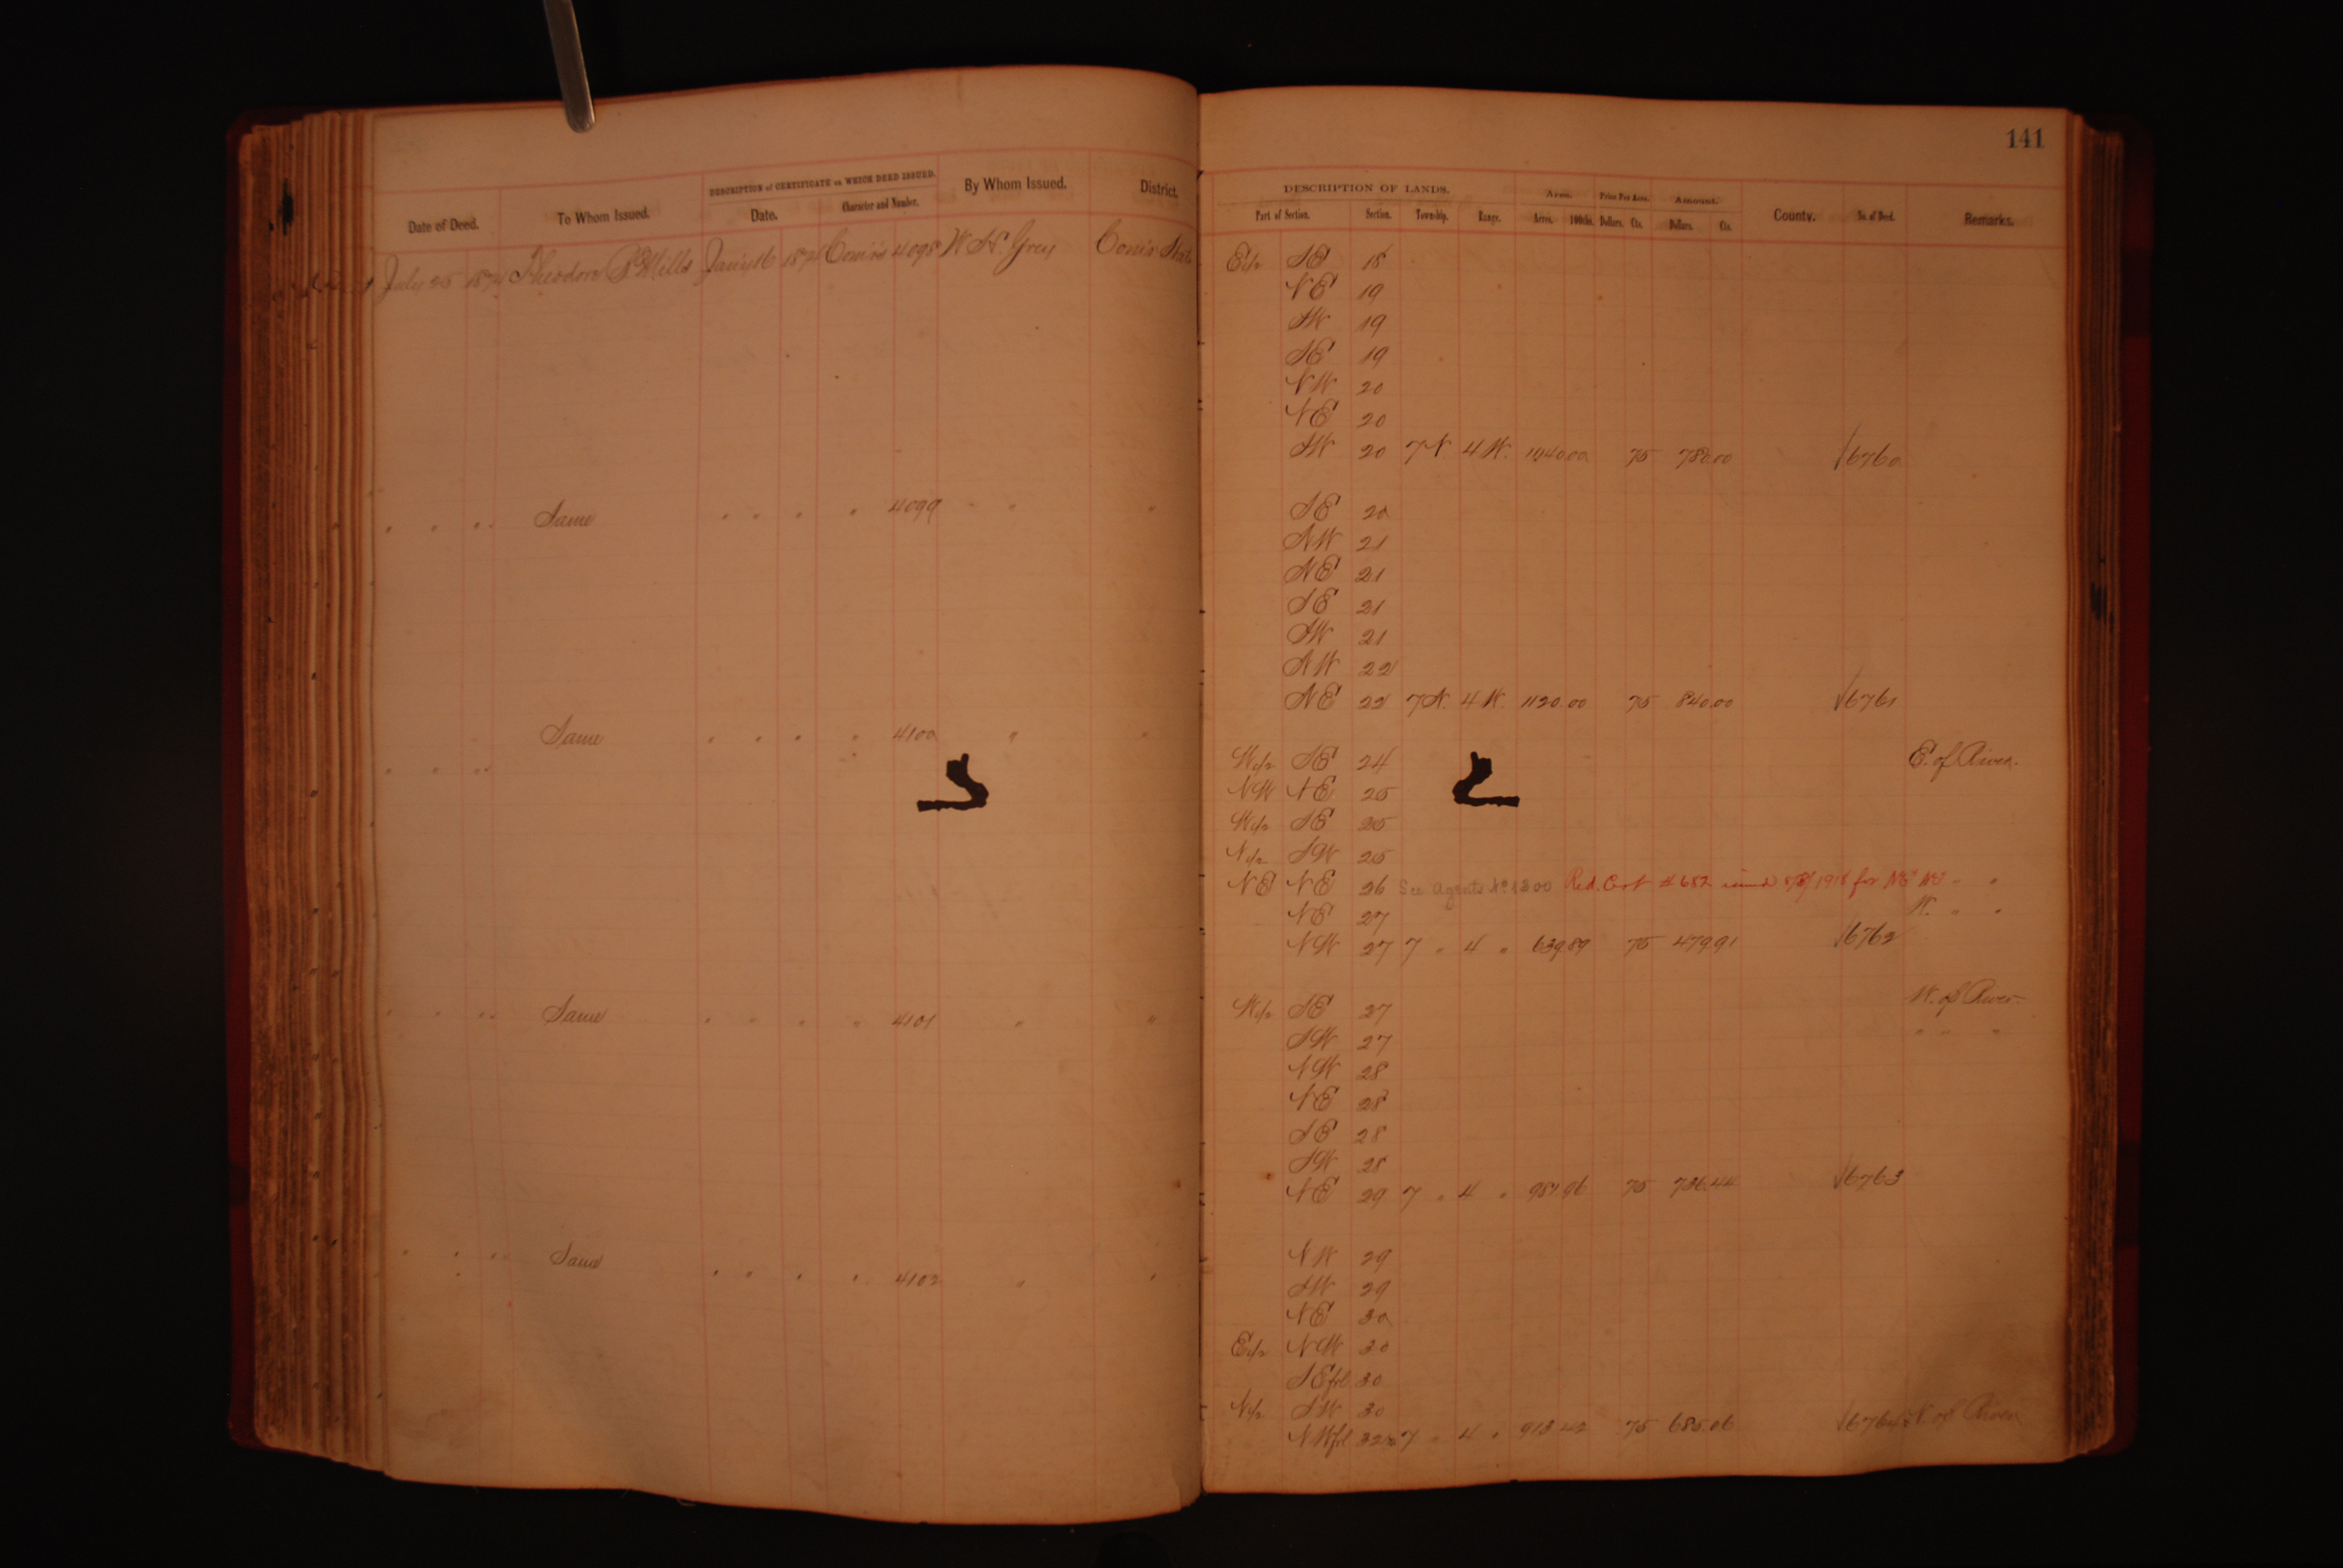 141
DESCRIPTION of CERTIFICATE on WHICH DEED ISSUED.
Date of Deed. To Whom Issued. Date. Character and Number. By Whom Issued. District.
DESCRIPTION OF LANDS. Area. Price Per Acre. Amount.
Part of Section. Section. Township. Range. Acres. 100ths. Dollars. Cts. Dollars. Cts. County. No. of Deed. Remarks.
July 25 1874 Theodore P. Mills Jan'y 16 187 Com'rs 4098 W. H. Grey Com'r State
E1/2 SE 18
NE 19
SW 19
SE 19
NW 20
NE 20
SW 20 7N. 4W. 1040.00 75 780.00 6760
" " " " Same " " " " 4099 " "
SE 20
NW 21
NE 21
SE 21
SW 21
NW 22
NE 22 7N. 4W. 1120.00 75 840.00 6761
" " " " Same " " " " 4100 " "
W1/2 SE 24 E. of River.
NW NE 25
W1/2 SE 25
N1/2 SW 25
NE NE 26 See Agents No 1300 Red. Cert #682 issued 1918 for NE NE " "
NE 27 W. " "
NW 27 7 " 4 " 639.89 75 479.91 6762
" " " " Same " " " " 4101 " "
W1/2 SE 27 W. of River
SW 27 " " "
NW 28
NE 28
SE 28
SW 28
NE 29 7 " 4 " 981.96 75 736.44 6763
" " " " Same " " " " 4102 " "
NW 29
SW 29
NE 30
E1/2 NW 30
SEfrl 30
N1/2 SW 30
NWfrl 32 7 " 4 " 913.42 75 685.06 6764 N. of River